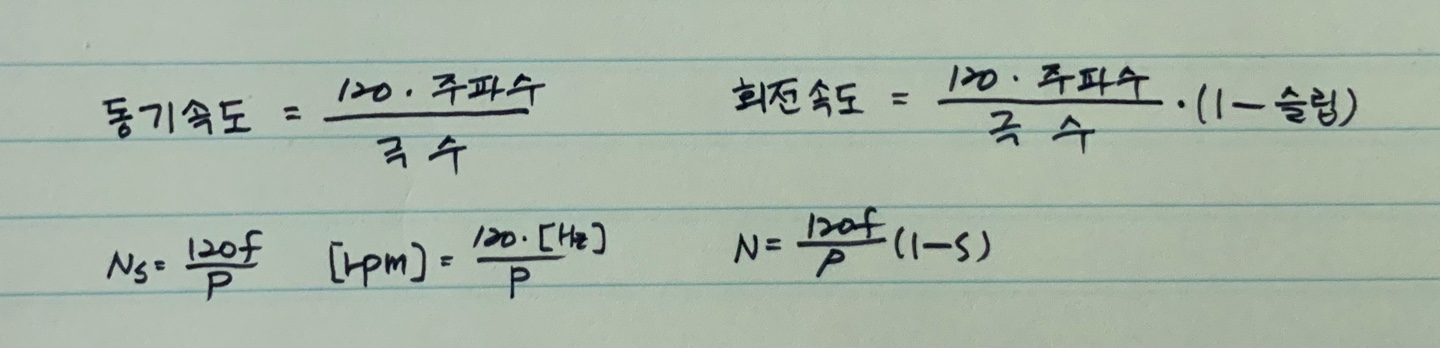 동기속도 = 120 · 주파수 / 극 수
회전속도 = 120 · 주파수 / 극 수 · (1 - 슬립)
Ns = 120f / P [rpm] = 120 · [Hz] / P
N = 120f / P (1 - s)